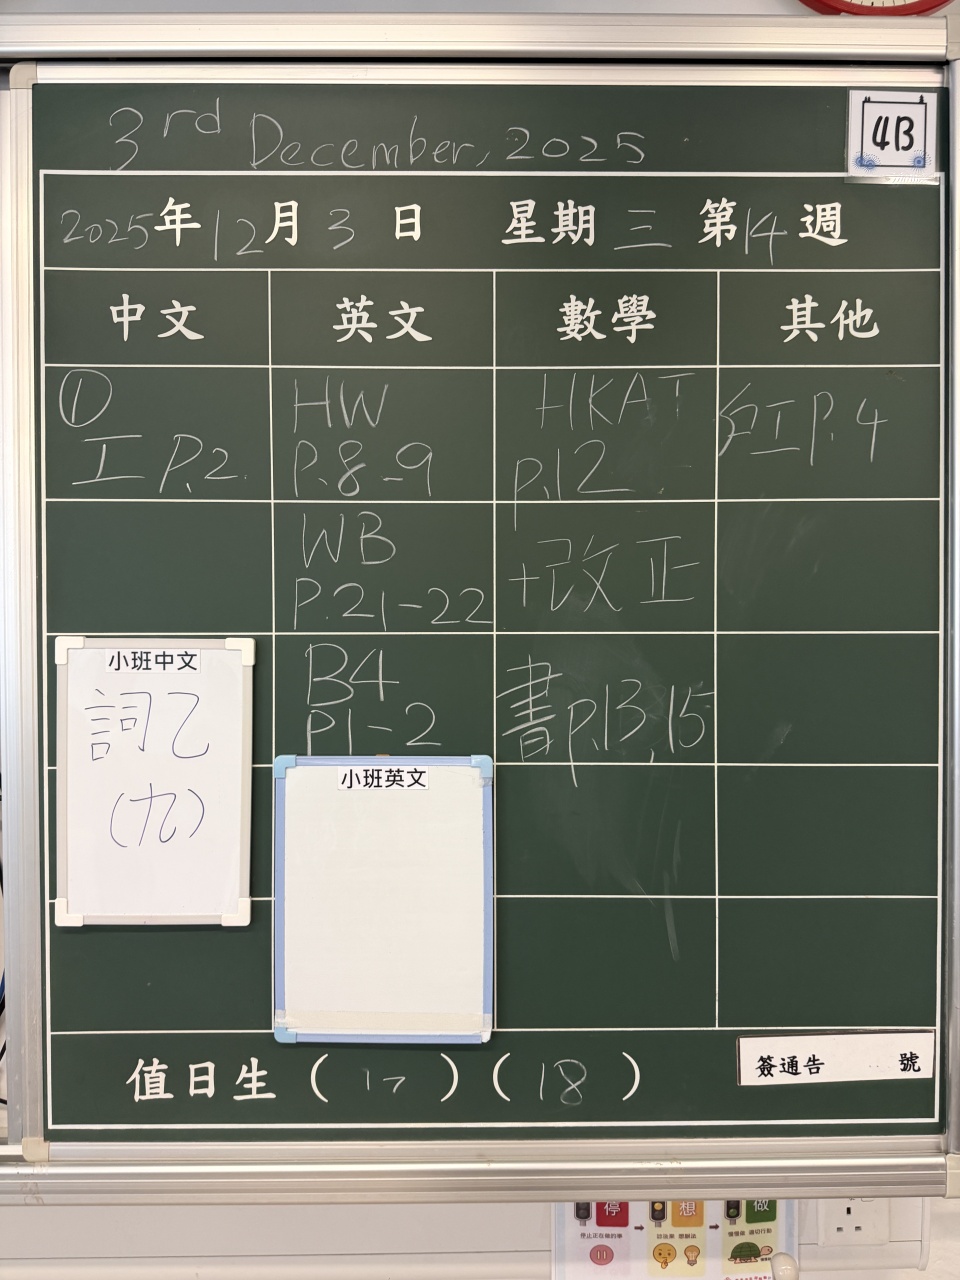 3rd December, 2025
4B
2025年12月3日 星期三 第14週
中文 英文 數學 其他
①
工 P.2
HW
P.8-9
WB
P.21-22
B4
P1-2
HKAT
p.12
+改正
書p.13,15
紅 P.4
小班中文
詞乙
(九)
小班英文
值日生 (17) (18)
簽通告 號
停 想 做